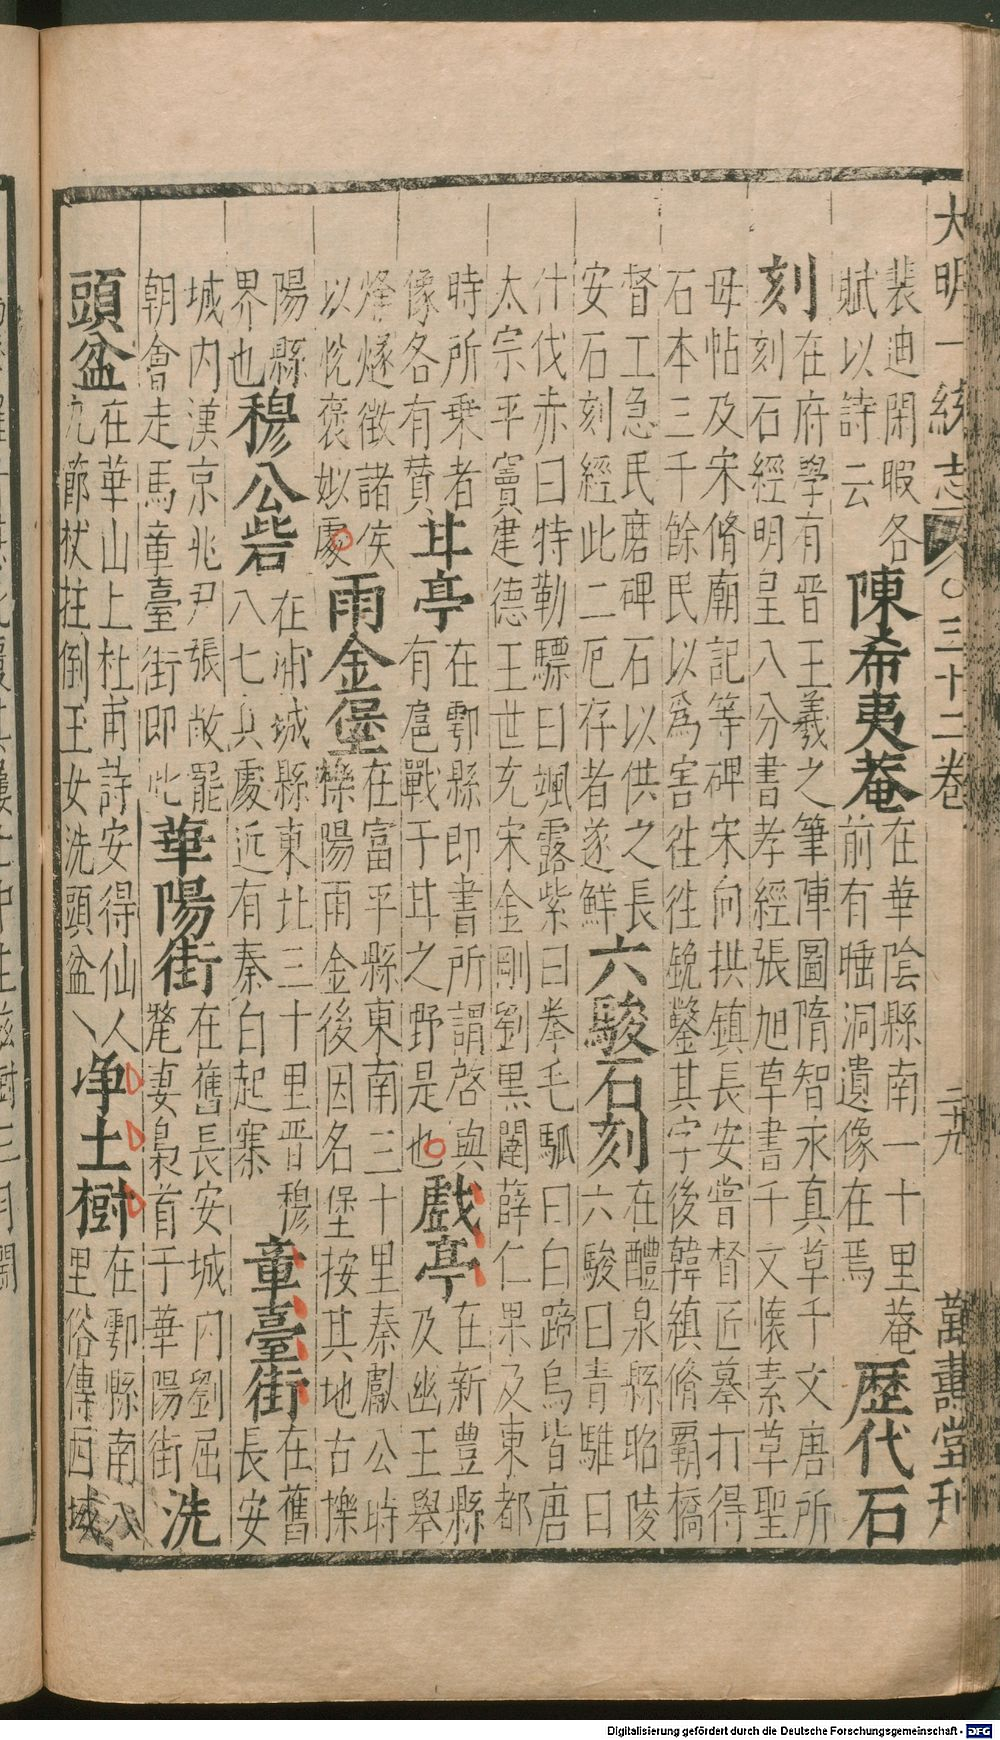 大明一統志 〇三十二卷 二九 萬壽堂刊
裴迪閑暇各
賦以詩云
陳希夷菴
在華陰縣南一十里菴
前有睡洞遺像在焉
歷代石
刻
在府學有晋王羲之筆陣圖隋智永真草千文唐所
刻石經明皇八分書孝經張旭草書千文懷素草聖
母帖及宋脩廟記等碑宋向拱鎮長安嘗督匠摹打得
石本三千餘民以爲害往往鋭鑿其字後韓縝脩霸橋
督工急民磨碑石以供之長
安石刻經此二厄存者遂鮮
六駿石刻
在醴泉縣昭陵
六駿曰青騅曰
什伐赤曰特勒驃曰颯露紫曰拳毛騧曰白蹄烏皆唐
太宗平竇建德王世充宋金剛劉黑闥薛仁杲及東都
時所乗者
像各有贊
甘亭
在鄠縣即書所謂啓與
有扈戰于甘之野是也
戲亭
在新豊縣
及幽王舉
烽燧徵諸侯
以恱褒姒處
雨金堡
在富平縣東南三十里秦獻公時
櫟陽雨金後因名堡按其地古櫟
陽縣
界也
穆公砦
在浦城縣東北三十里晋穆
八七具處近有秦白起寨
章臺街
在舊
長安
城内漢京兆尹張敞罷
朝會走馬章臺街即此
華陽街
在舊長安城内劉屈
氂妻梟首于華陽街
洗
頭盆
在華山上杜甫詩安得仙人
九節杖拄倒玉女洗頭盆
净土樹
在鄠縣南八
里俗傳西域
Digitalisierung gefördert durch die Deutsche Forschungsgemeinschaft - DFG